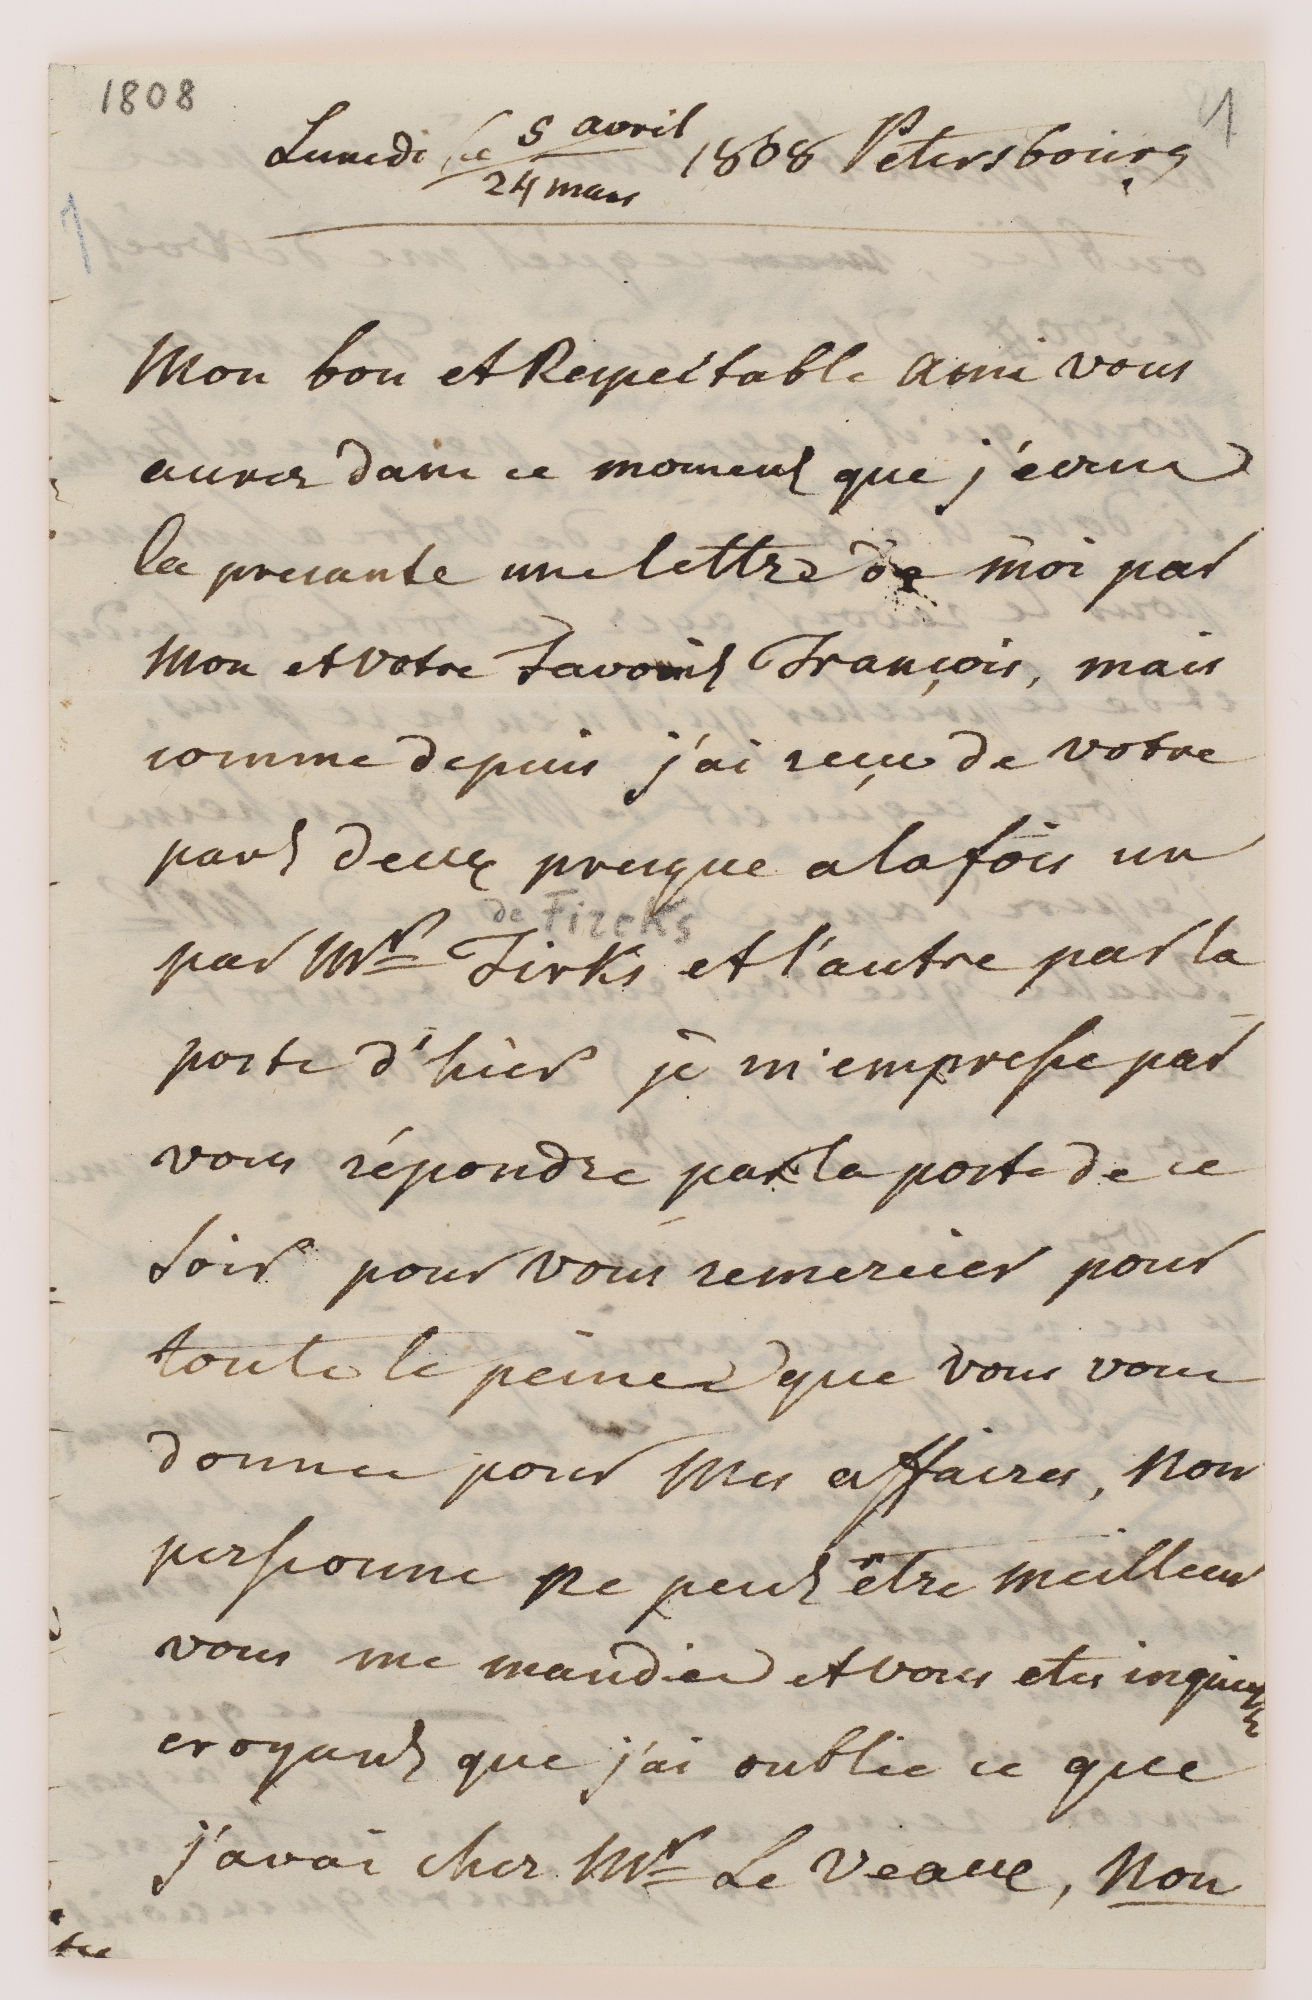 1808
1
Lundi le 5 avril / 24 mars 1808 Petersbourg
1
Mon bon et Respectable ami vous
aurez dans ce moment que j'écrive
la presante une lettre de moi par
Mon et votre Favorit François, mais
comme depuis j'ai reçue de votre
part deux presque a la fois un
de Fircks
par Mr Firks et l'autre par la
poste d'hier je m'empresse par
vous répondre par la poste de ce
soir pour vous remercier pour
toute le peine que vous vous
donnee pour Mes affaires, Non
personne ne peut être meilleur
vous me mandiee et vous etes inquiet
croyant que j'ai oubliee ce que
j'avai chez Mr Le Veaux, Non